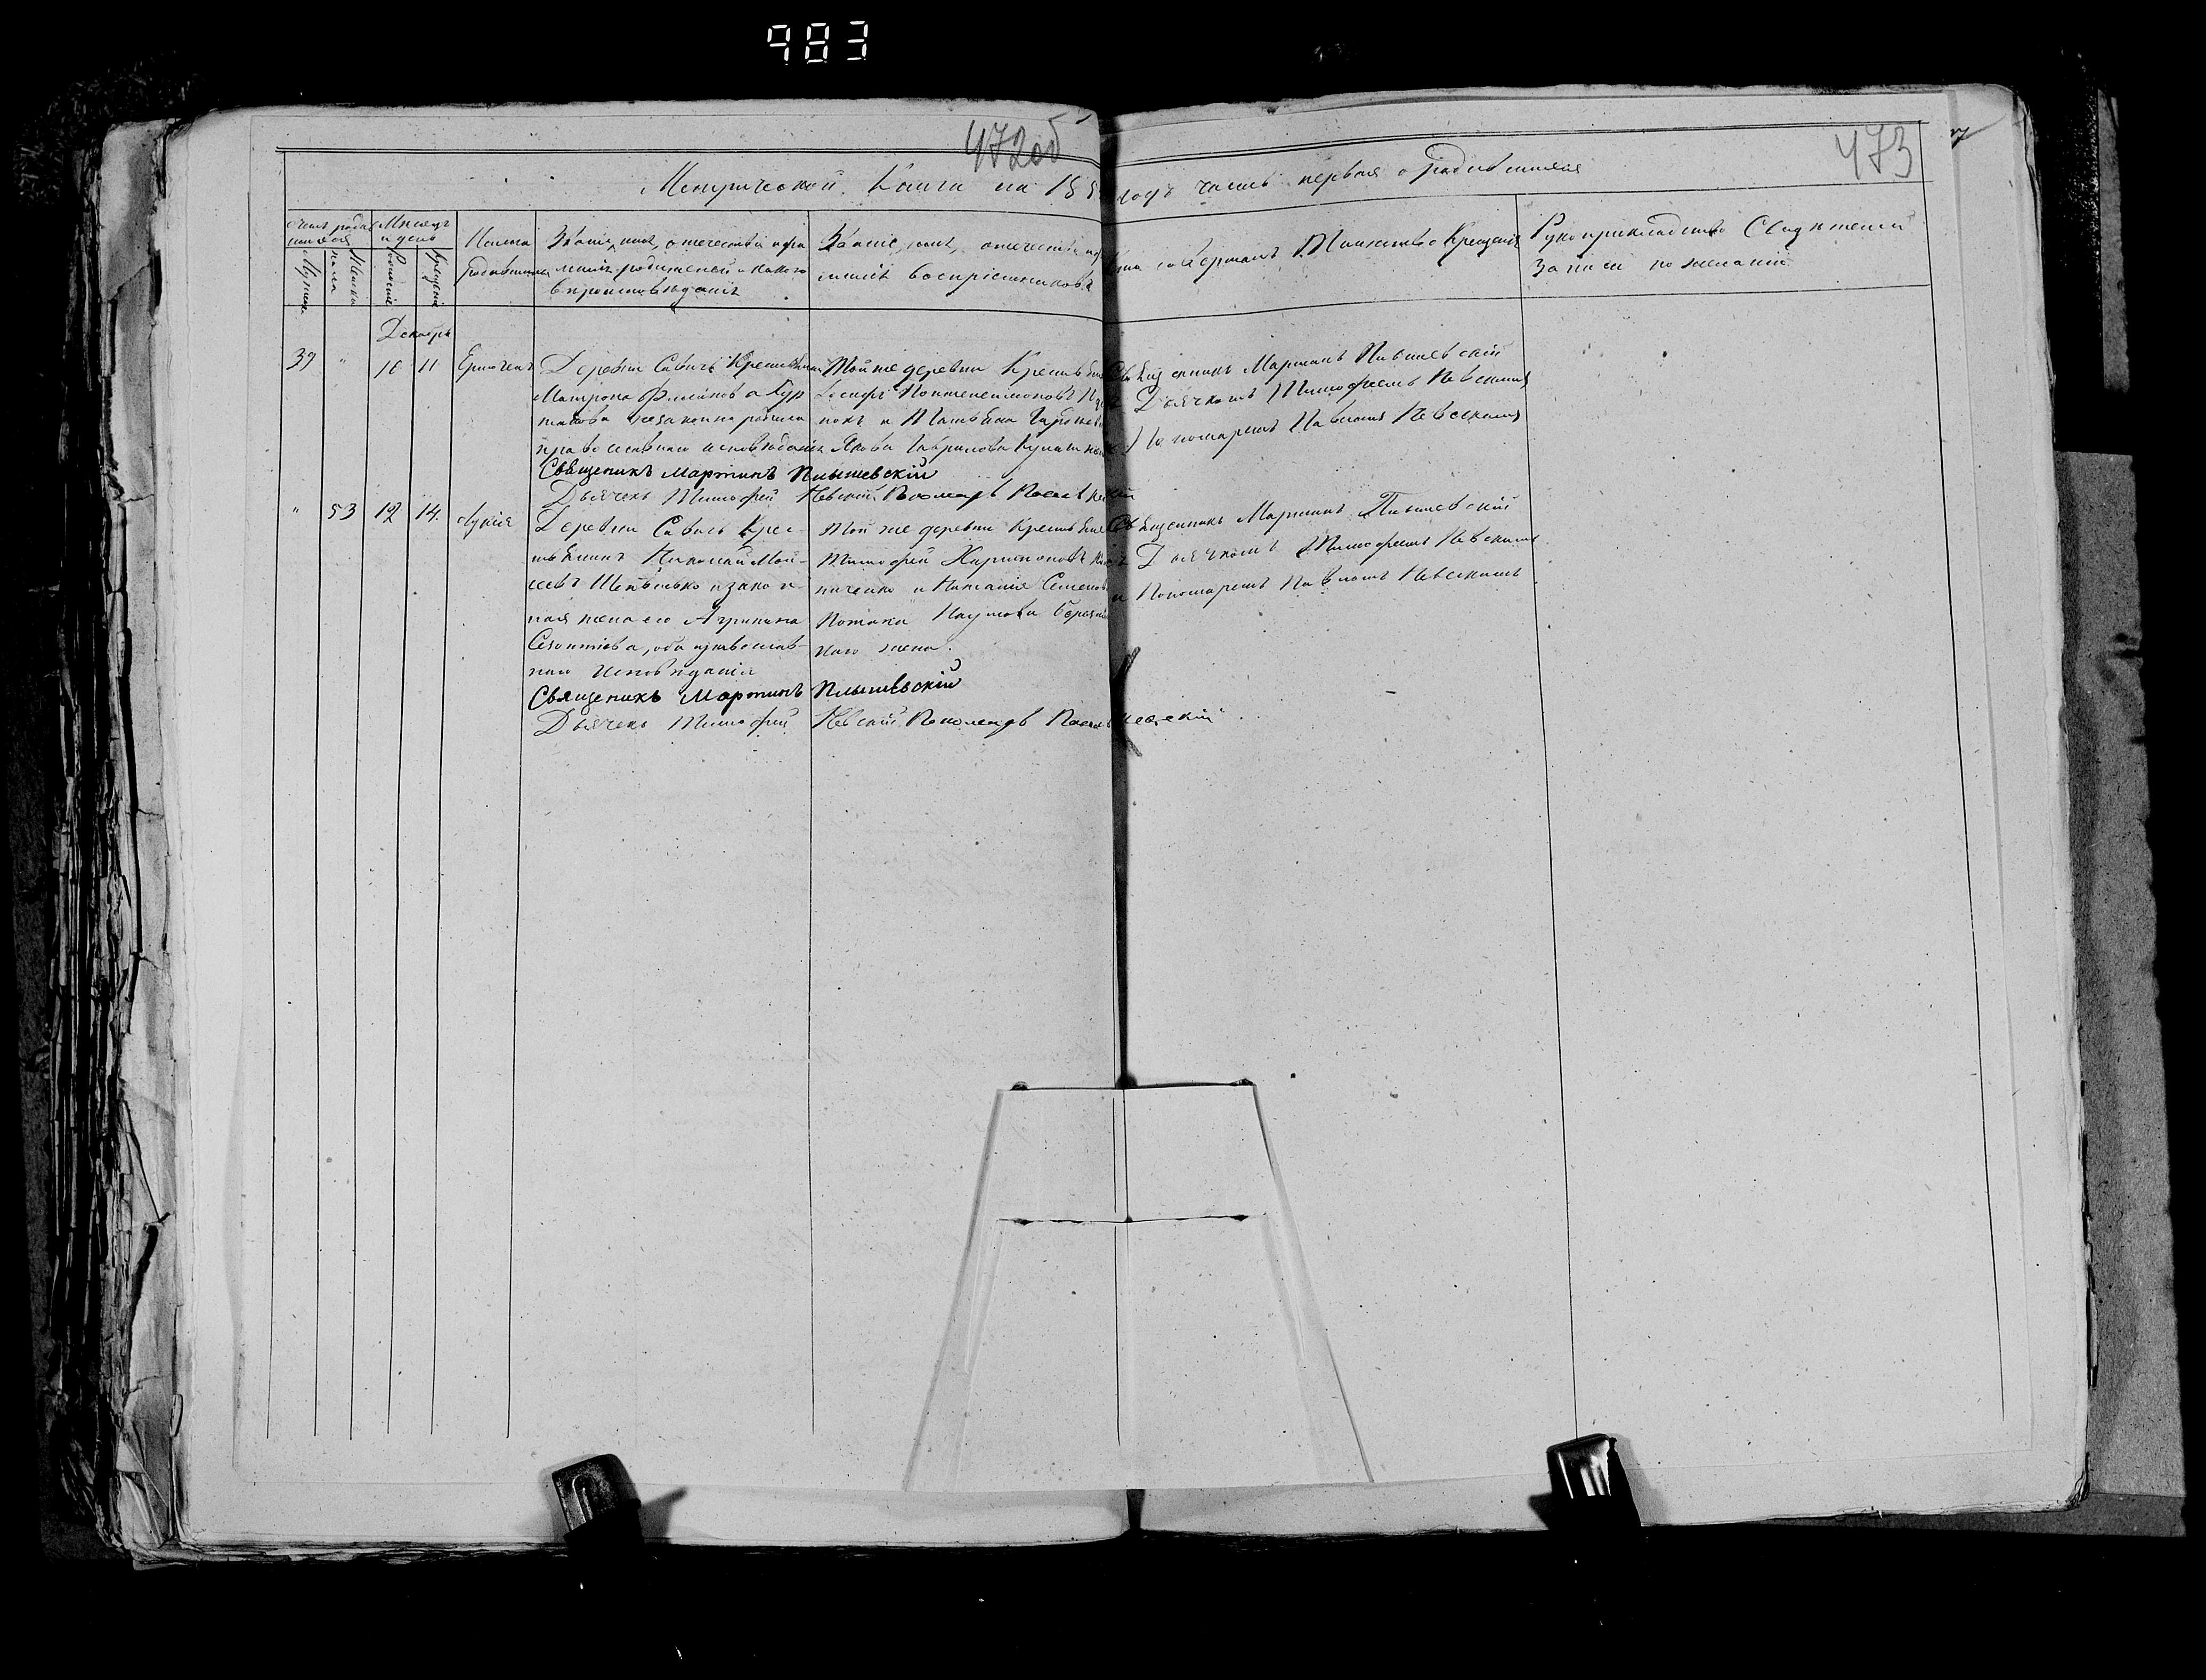 983
472об
473
Метрической Книги на 185 годъ часть первая о родившихся
Счетъ родив Месяцъ
шихся и день
Мужска
пола
Женска
Рожденія
Крещенія
Имена
родившихся
Званіе, имя, отечество и фа
милія родителей и какого
вѣроисповѣданія
Званіе, имя, отечество и фа
милія воспріемниковъ
Кто совершалъ Таинство Крещенія
Рукоприкладство Свидѣтелей
записи по желанію
Декабрь
39 " 10 11 Ермогенъ
Деревни Савичъ Крестьянка
Матрона Филипова Кур
незаконнорожден
православнаго исповѣданія
Той же деревни Крестьянинъ
Іосифъ Пантелеимоновъ
и Татьяна
Якова Гаврилова
Священникъ Мартинъ Пнышевскій
Дьячкомъ Тимофеемъ Невскимъ
Пономаремъ Павломъ Невскимъ
Священикъ Мартинъ Пнышевскій
Дьячекъ Тимофей Невскій Пономарь Павелъ Невскій
" 53 12 14. Лукія
Деревни Савичъ Крес-
тьянинъ Николай Мой-
сеевъ и закон
ная жена его Агрипина
Созонтіева, оба православ-
наго исповѣданія
Той же деревни Крестьянинъ
Тимофей Харитоновъ
и Наталія Семенова
Потапа Наумова
наго жена.
Священникъ Мартинъ Пнышевскій
съ Дьячкомъ Тимофеемъ Невскимъ
и Пономаремъ Павломъ Невскимъ
Священикъ Мартинъ Пнышевскій
Дьячекъ Тимофей Невскій Пономарь Павелъ Невскій